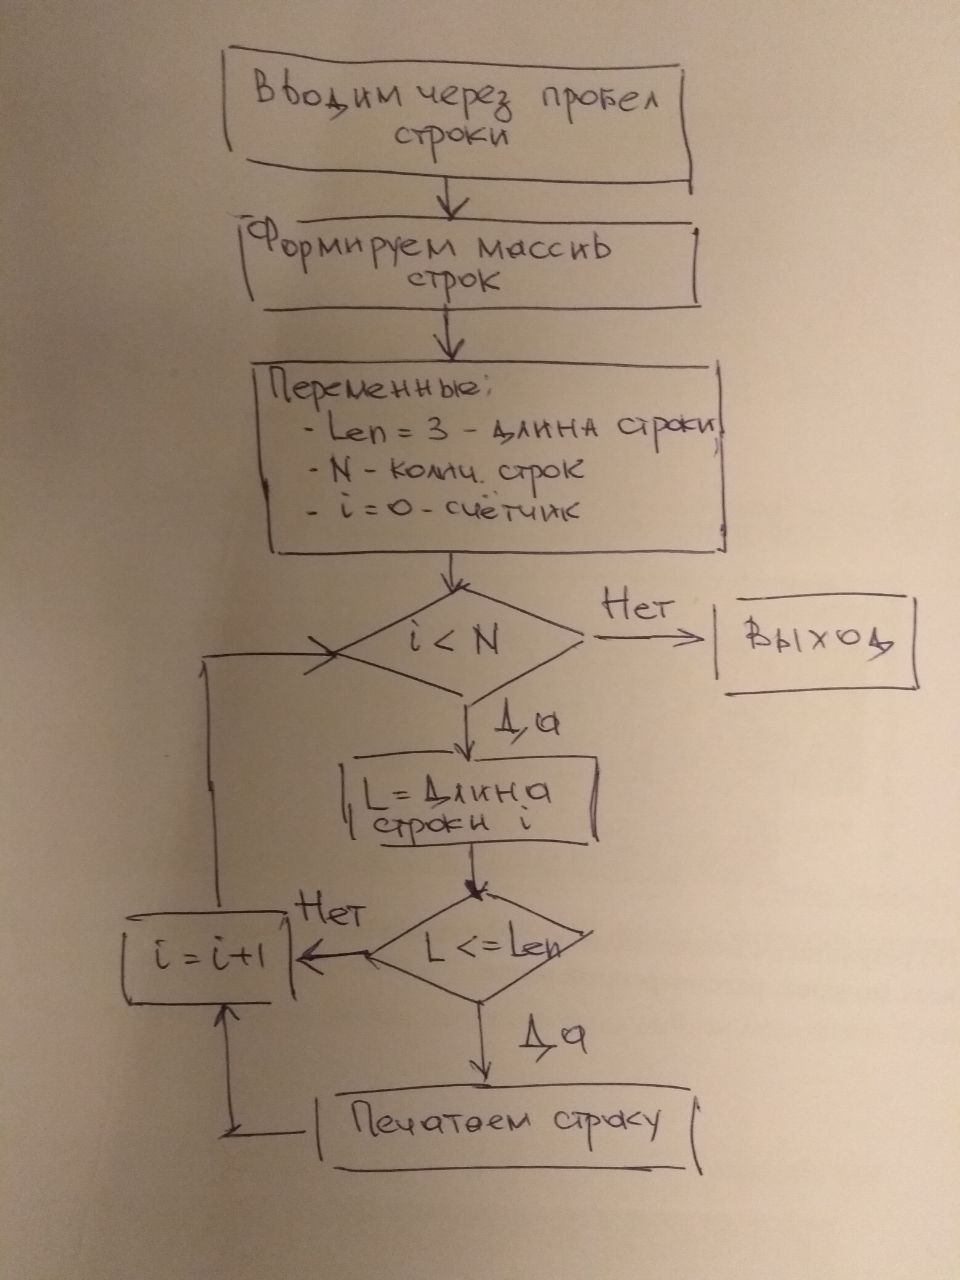 Вводим через пробел
строки
Формируем массив
строк
Переменные:
- Len = 3 - длина строки
- N - колич. строк
- i = 0 - счётчик
i < N
Нет
Выход
Да
L = длина
строки i
Нет
i = i+1
L <= Len
Да
Печатаем строку